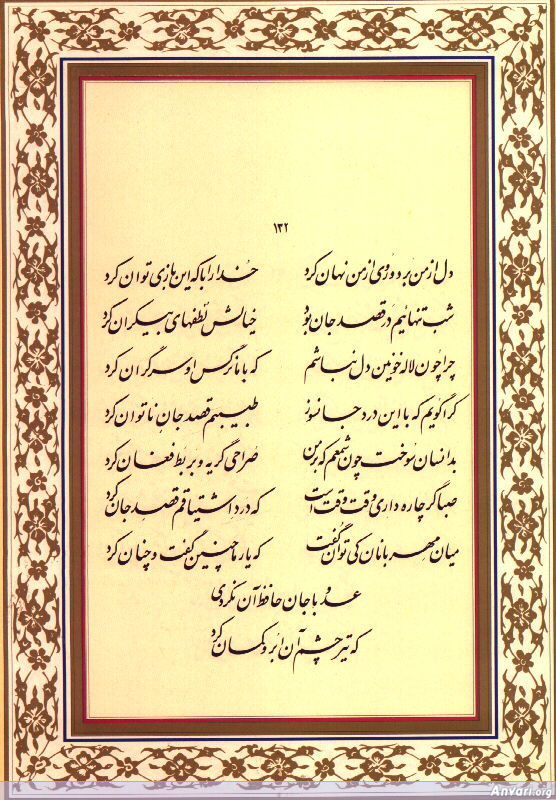 ۱۳۲
دل از من برد و روی از من نهان کرد خدا را با که این بازی توان کرد
شب تنهائیم در قصد جان بود خیالش لطفهای بیکران کرد
چرا چون لاله خونین دل نباشم که با ما نرگس او سرگران کرد
کرا گویم که با این درد جانسوز طبیبم قصد جان ناتوان کرد
بدانسان سوخت چون شمعم که بر من صراحی گریه و بربط فغان کرد
صبا گر چاره داری وقت وقت است که درد اشتیاقم قصد جان کرد
میان مهربانان کی توان گفت که یار ما چنین گفت و چنان کرد
عدو با جان حافظ آن نکردی
که تیر چشم آن ابرو کمان کرد
Anvari.org